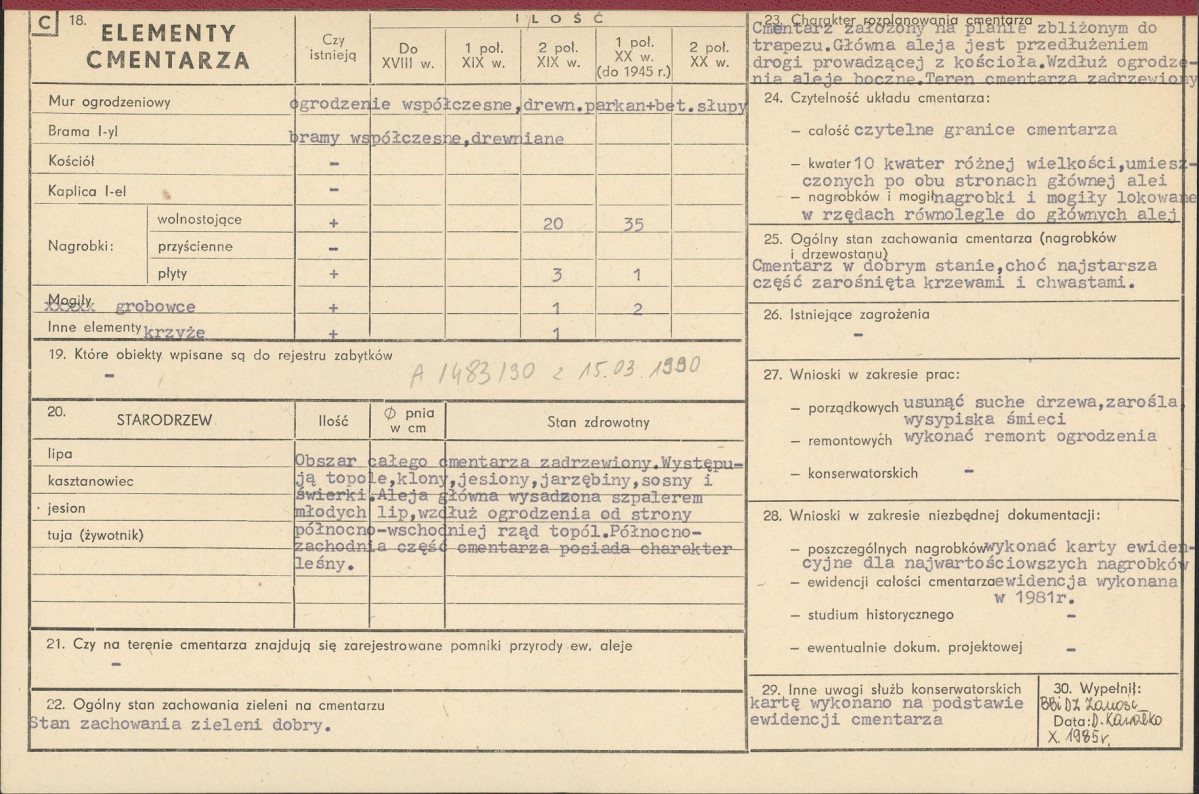 C
18. ELEMENTY CMENTARZA
Czy istnieją
ILOŚĆ
Do XVIII w.
1 poł. XIX w.
2 poł. XIX w.
1 poł. XX w. (do 1945 r.)
2 poł. XX w.
Mur ogrodzeniowy ogrodzenie współczesne,drewn.parkan+bet.słupy
Brama I-yl bramy współczesne,drewniane
Kościół -
Kaplica I-el -
Nagrobki:
wolnostojące + 20 35
przyścienne -
płyty + 3 1
Mogiły xxxxx grobowce + 1 2
Inne elementy krzyże + 1
19. Które obiekty wpisane są do rejestru zabytków
- A 1483/90 z 15.03.1990
20. STARODRZEW
Ilość
Ø pnia w cm
Stan zdrowotny
lipa
kasztanowiec
jesion
tuja (żywotnik)
Obszar całego cmentarza zadrzewiony.Występu-
ją topole,klony,jesiony,jarzębiny,sosny i
świerki.Aleja główna wysadzona szpalerem
młodych lip,wzdłuż ogrodzenia od strony
północno-wschodniej rząd topól.Północno-
zachodnia część cmentarza posiada charakter
leśny.
21. Czy na terenie cmentarza znajdują się zarejestrowane pomniki przyrody ew. aleje
-
22. Ogólny stan zachowania zieleni na cmentarzu
Stan zachowania zieleni dobry.
23. Charakter rozplanowania cmentarza
Cmentarz założony na planie zbliżonym do
trapezu.Główna aleja jest przedłużeniem
drogi prowadzącej z kościoła.Wzdłuż ogrodze-
nia aleje boczne.Teren cmentarza zadrzewiony
24. Czytelność układu cmentarza:
- całość czytelne granice cmentarza
- kwater 10 kwater różnej wielkości,umiesz-
czonych po obu stronach głównej alei
- nagrobków i mogił nagrobki i mogiły lokowane
w rzędach równolegle do głównych alej
25. Ogólny stan zachowania cmentarza (nagrobków
i drzewostanu)
Cmentarz w dobrym stanie,choć najstarsza
część zarośnięta krzewami i chwastami.
26. Istniejące zagrożenia
-
27. Wnioski w zakresie prac:
- porządkowych usunąć suche drzewa,zarośla,
wysypiska śmieci
- remontowych wykonać remont ogrodzenia
- konserwatorskich -
28. Wnioski w zakresie niezbędnej dokumentacji:
- poszczególnych nagrobków wykonać karty ewiden-
cyjne dla najwartościowszych nagrobków
- ewidencji całości cmentarza ewidencja wykonana
w 1981r.
- studium historycznego -
- ewentualnie dokum. projektowej -
29. Inne uwagi służb konserwatorskich
kartę wykonano na podstawie
ewidencji cmentarza
30. Wypełnił:
BBiDZ Zamość
Data: D. Kawałko
X. 1985r.